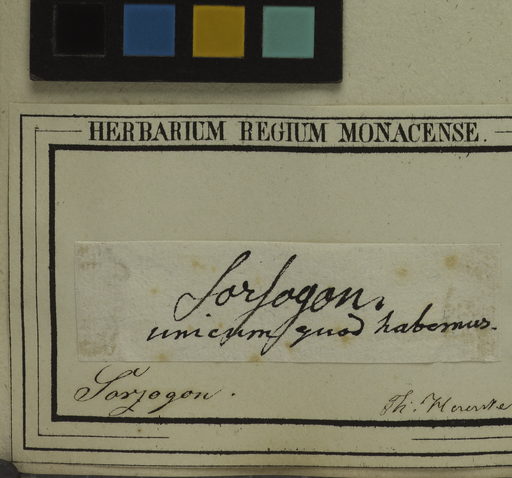 HERBARIUM REGIUM MONACENSE.
Sorsogon.
unicum quod habemus.
Sorzogon.
Th: